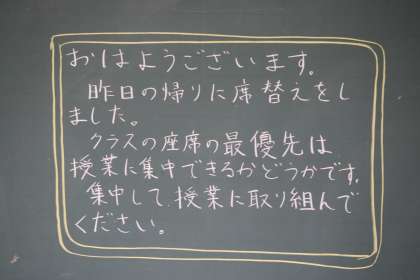 おはようございます。
昨日の帰りに席替えをし
ました。
クラスの座席の最優先は
授業に集中できるかどうかです。
集中して授業に取り組んで
ください。